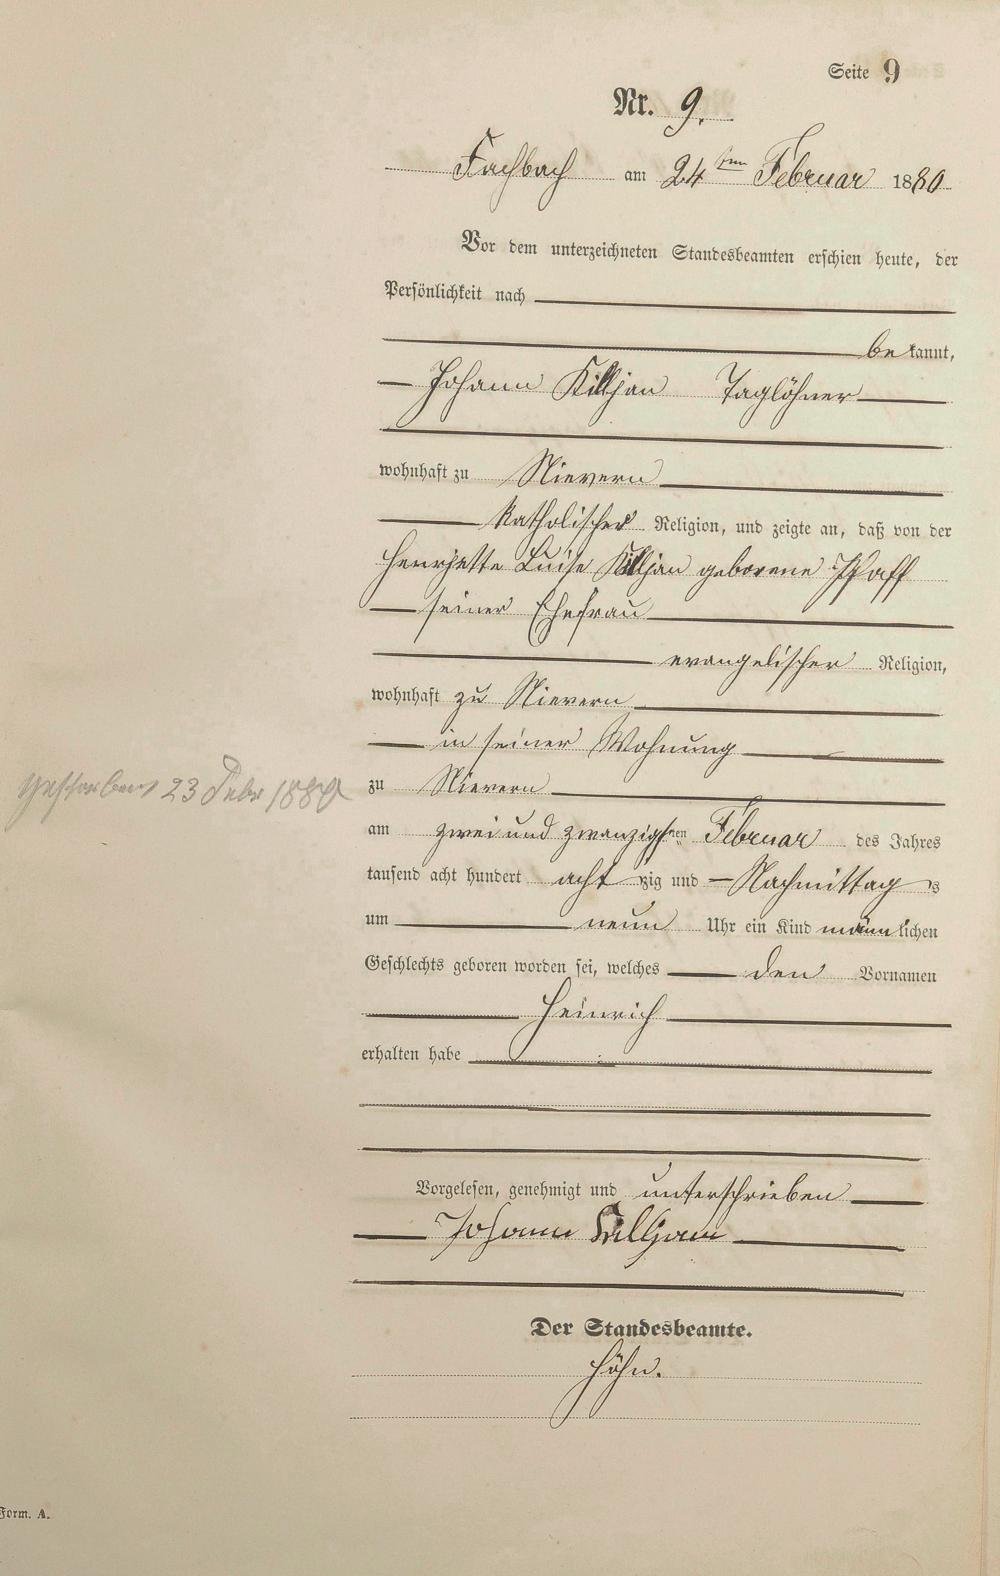 Seite 9
Nr. 9.
Fachbach am 24ten Februar 1880
Vor dem unterzeichneten Standesbeamten erschien heute, der
Persönlichkeit nach
bekannt,
Johann Killjan Taglöhner
wohnhaft zu Nievern
katholischer Religion, und zeigte an, daß von der
Henrjette Luise Killjan geborene Pfaff
seiner Ehefrau
evangelischer Religion,
wohnhaft zu Nievern
in seiner Wohnung
gestorben 23 Febr 1880
zu Nievern
am zwei und zwanzigsten Februar des Jahres
tausend acht hundert achtzig und Nachmittags
um neun Uhr ein Kind männlichen
Geschlechts geboren worden sei, welches den Vornamen
Heinrich
erhalten habe
Vorgelesen, genehmigt und unterschrieben
Johann Killjan
Der Standesbeamte.
Höhn.
Form. A.